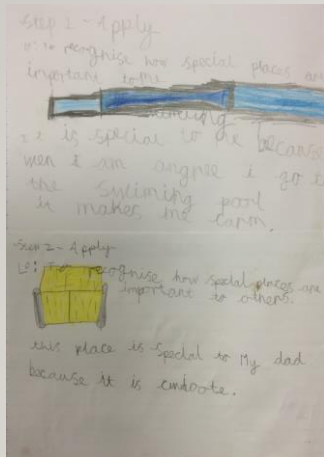 Step 2 - Apply
recognise how special places are
important to me
it is special to me because
wen I am angree i go t
the swiming pool
it makes me carm.
Step 2 - Apply
Lo: To recognise how special places are
important to others.
this place is special to My dad
because it is